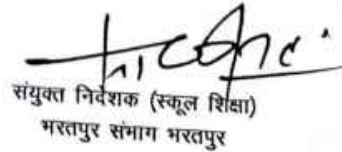 संयुक्त निदेशक (स्कूल शिक्षा)
भरतपुर संभाग भरतपुर